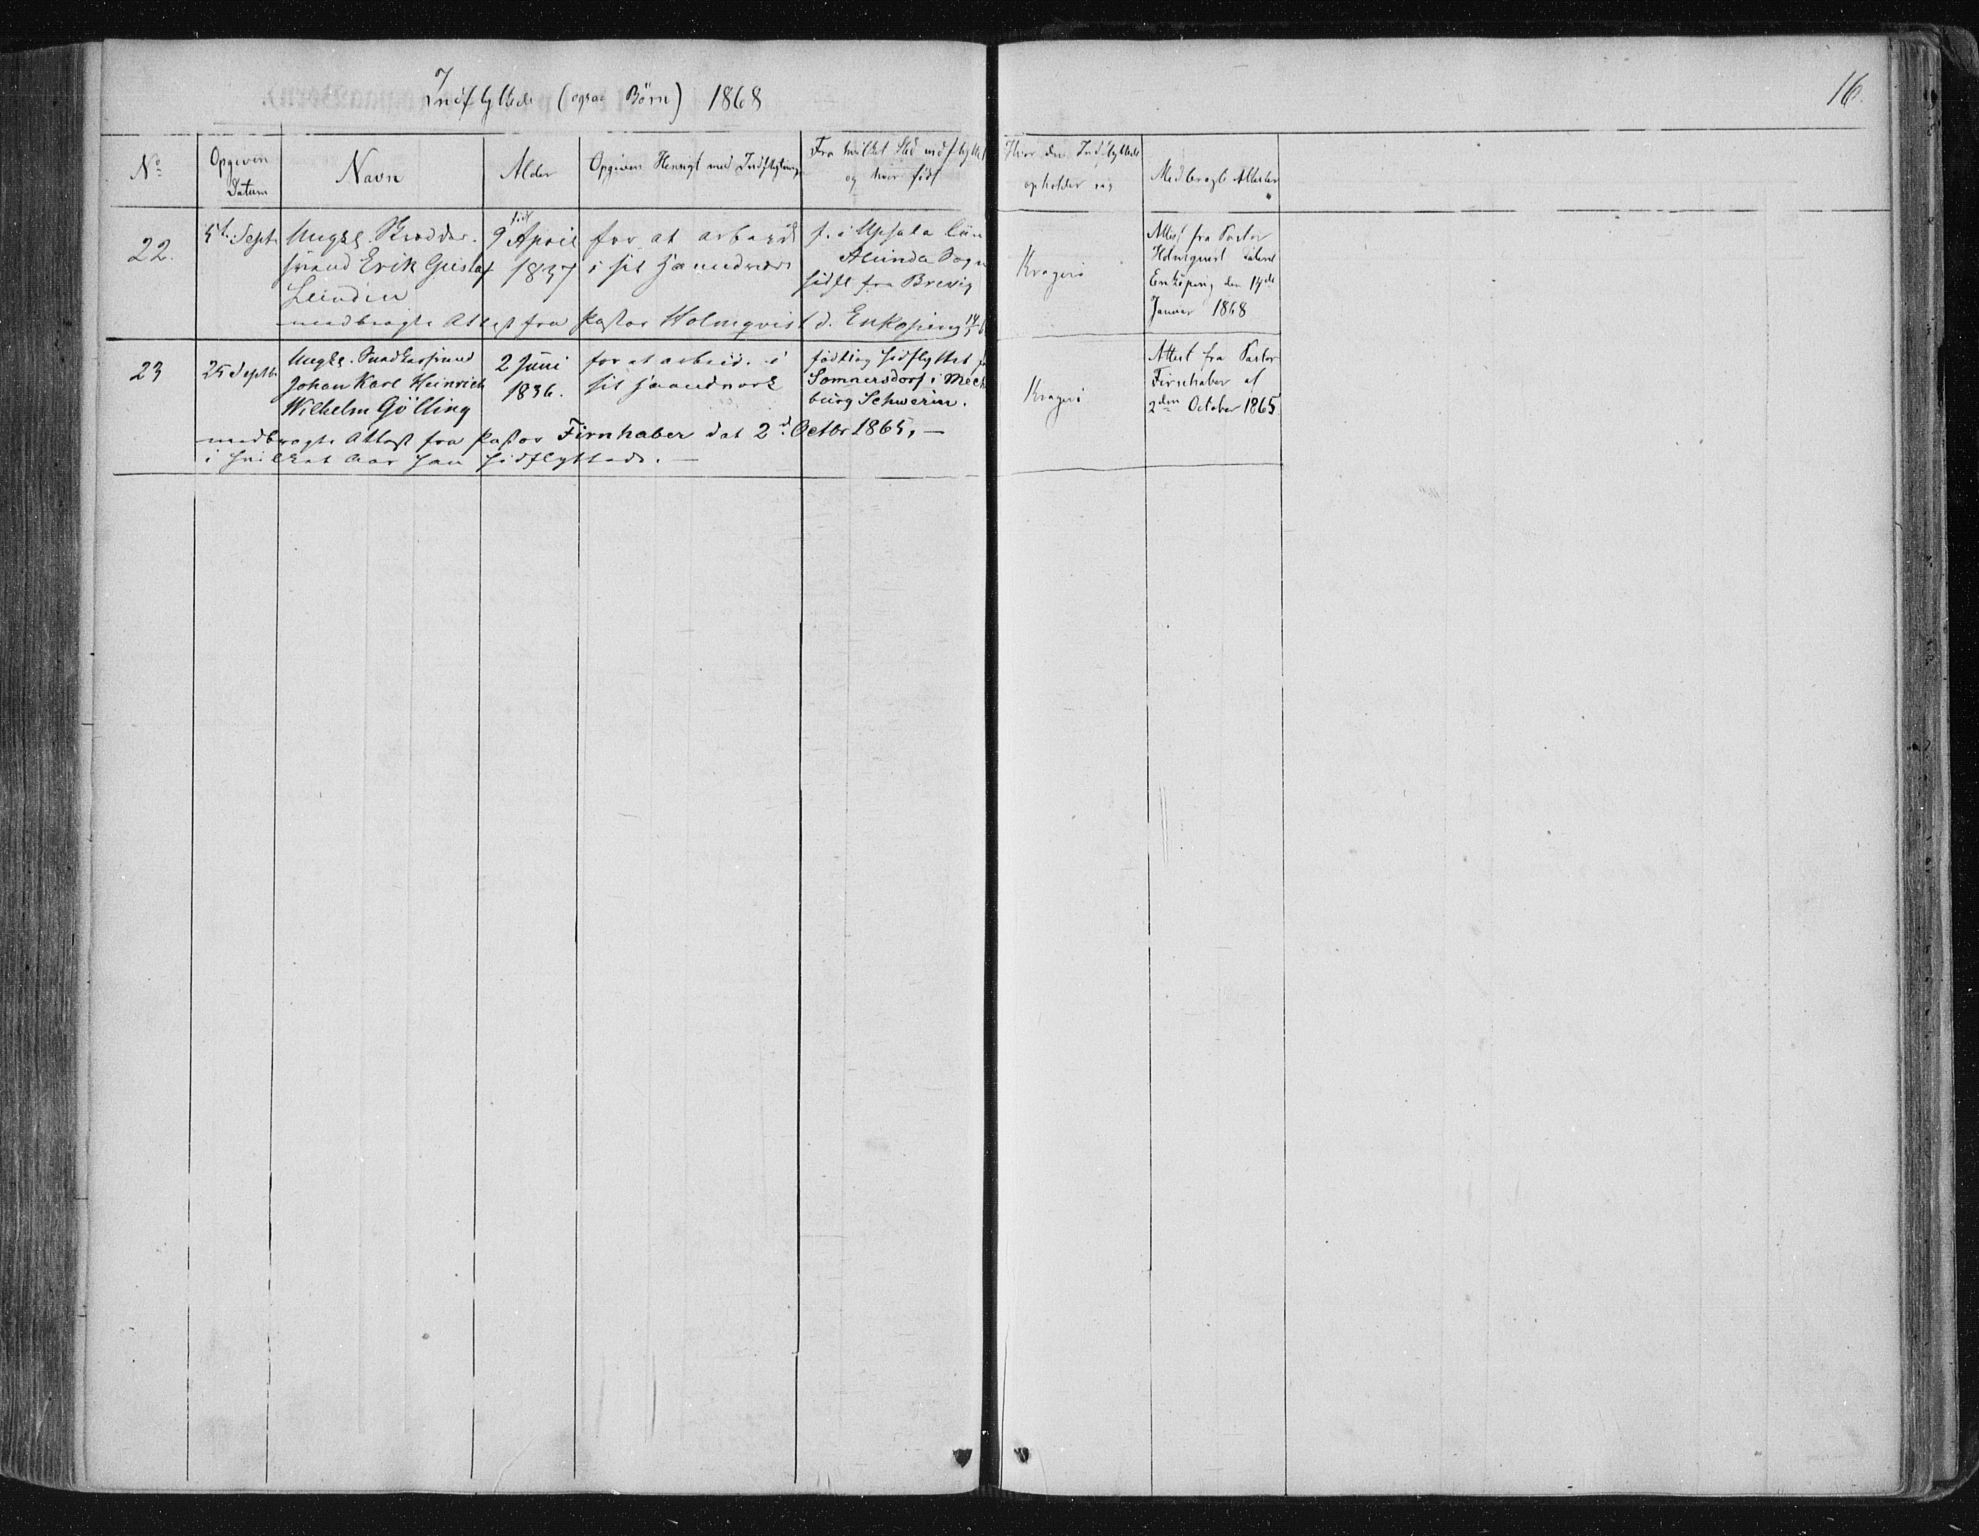 Indflyttede (ogsaa Börn) 1868
16.
No
Opgiven Datum
Navn
Alder
Opgiven Hensigt med Indflytning
Fra hvilket Sted indflyttet
og hvor født
Hvor den Indflyttede
opholder sig
Medbragte Attester
22.
5te Sept.
Ungk. Skrædder-
svend Erik Gustaf
Lundin
født
9 April
1837
for at arbeide
i sit Haandværk
f. i Upsala Län
Alunda Sogn
hidfl. fra Brevig
medbragte Attest fra Pastor Holmqvist d. Enköping
Kragerö
Attest fra Pastor
Holmquist dateret
Enköping den 14de
Januar 1868
23
25 Septb.
Ungk. Snedkersvend
Johan Karl Heinrich
Wilhelm Gölling
2 Juni
1836.
for at arbeide i
sit Haandværk
født og hidflyttet fra
Sommersdorf i Meck
burg Schwerin.
medbragte Attest fra Pastor Firnhaber dat 2d Octbr 1865, —
i hvilket Aar han hidflyttede. —
Kragerö
Attest fra Pastor
Firnhaber af
2den October 1865